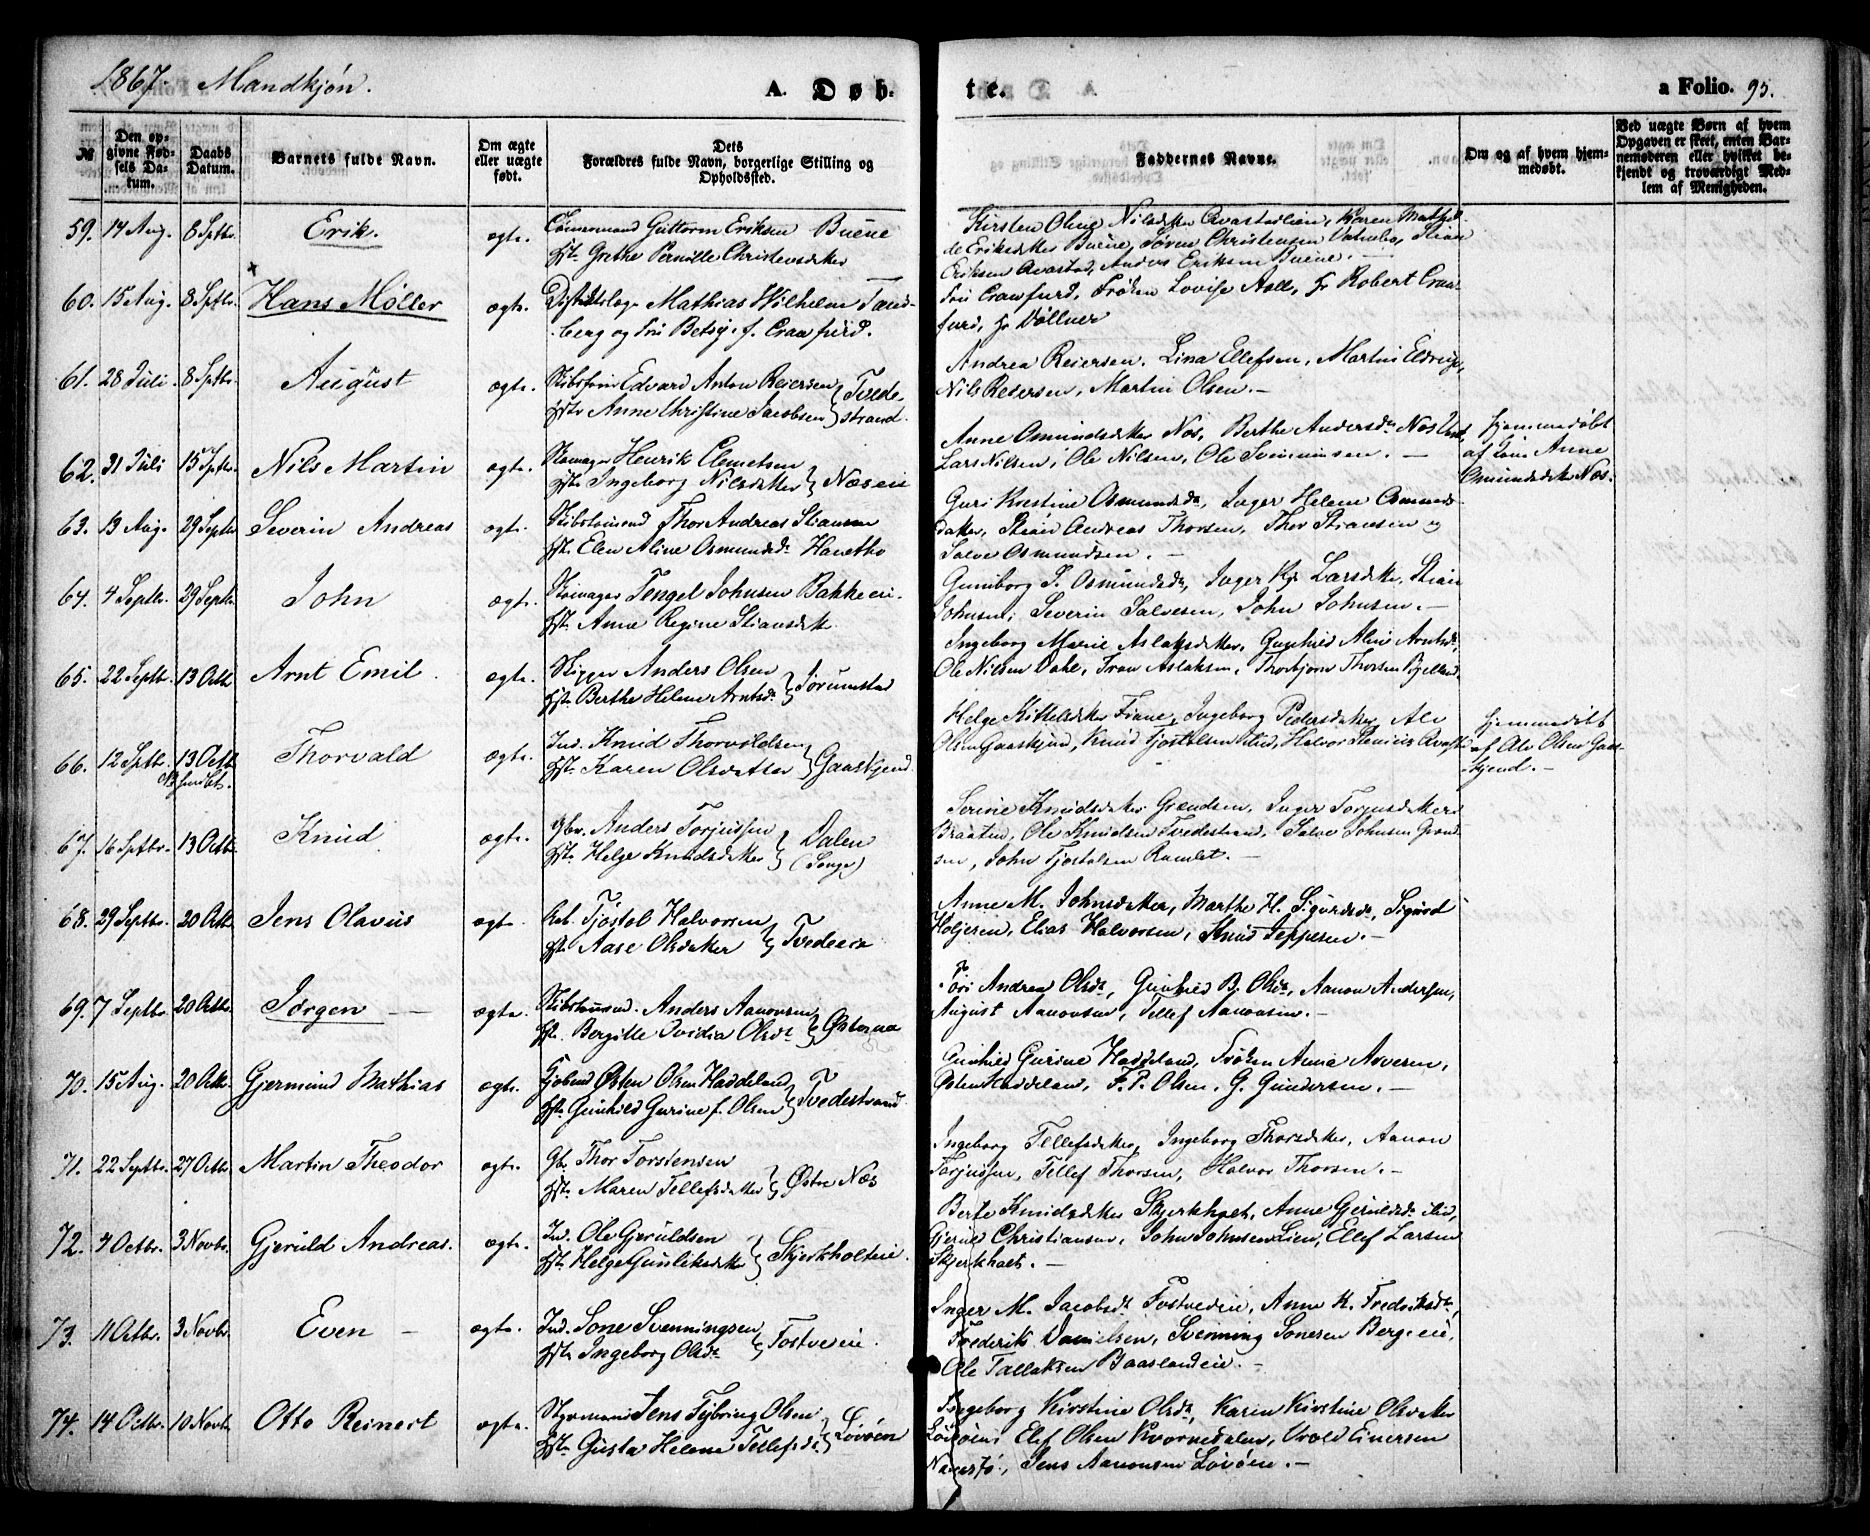 1867. Mandkjøn.
A. Døb-
te.
a Folio. 95.
No
Den op-
givne Fød-
sels Da-
tum.
Daabs
Datum.
Barnets fulde Navn.
Om ægte
eller uægte
født.
Dets
Forældres fulde Navn, borgerlige Stilling og
Opholdssted.
Faddernes Navne.
Om og af hvem hjem-
medøbt.
Ved uægte Børn af hvem
Opgaven er skeet, enten Bar-
nemoderen eller hvilket be-
kjendt og troværdigt Med-
lem af Menigheden.
59. 14 Aug. 8 Septbr. Erik. ægte. Tømmermand Guttorm Eriksen Buene
Hst. Grethe Pernille Christensdatter
Kirsten Oline Nilsdatter Avastadlien, Karen Mathil-
de Eriksdatter Buene, Søren Christensen Vatnebo, Stian
Eriksen Avastad, Anders Eriksen Buene. -
60. 15 Aug. 8 Septbr. Hans Møller ægte. Distriktslæge Mathias Wilhelm Tand-
berg og Fru Betsy f. Crawfurd.
Fru Crawfurd, Frøken Lovise Aall, Hr Robert Craw-
furd, Hr Vøllner
61. 28 Juli. 8 Septbr. August ægte. Skibsfører Edvard Anton Reiersen
Hst. Anne Christine Jacobsen } Tvede-
strand.
Andrea Reiersen. Lina Ellefsen, Martin
Nils Reiersen, Martin Olsen. -
62. 31 Juli 15 Septbr. Nils Martin ægte. Henrik Clemetsen
Hst. Ingeborg Nilsdatter } Næseie
Anne Osmundsdatter Næs, Berthe Andersdt. Næs
Lars Nilsen, Ole Nilsen, Ole Svenningsen. -
Hjemmedøbt
af Anne
Osmundsdatter Næs.
63. 13 Aug. 29 Septbr Severin Andreas ægte. Skibstømmermand Thor Andreas Stiansen
Hst. Elen Aline Osmundsdt. Hanetho
Guri Kirstine Osmundsdt, Inger Helene Osmunds-
datter, Stian Andreas Thorsen, Thor Stiansen og
Salve Osmundsen. -
64. 4 Septbr. 29 Septbr. John ægte. Tengel Johnsen Bakkeeie.
Hst. Anne Regine Stiansdatter
Gunnborg S. Osmundsdt, Inger Kj. Larsdatter, Stian
Johnsen, Severin Salvesen, John Johnsen. -
65. 22 Septbr. 13 Octbr Arnt Emil. ægte. Skipper Anders Olsen
Hst. Berthe Helene Arntsdt. } Sørumstad
Ingeborg Marie Aslaksdatter, Gunhild Aline Arntsdt.
Ole Nilsen Dahl, Aslaksen, Thorbjørn Thorsen Bjelland.
66. 12 Septbr. 13 Octbr Thorvald ægte. Ind. Knud Thorvoldsen
Hst. Karen Olsdatter } Gaaskjend
Helge Kittelsdatter Fiane, Ingeborg Pedersdatter, Ale
Olsen Gaaskjend, Knud Tjostolsen Lied, Halvor
Hjemmedøbt
af Ale Olsen Gaas-
kjend. -
67. 16 Septbr. 13 Octbr. Knud. ægte. Gbr. Anders Torjussen
Hst. Helge Knudsdatter } Dalen
(Songe)
Serine Knudsdatter Grændsen, Inger Torjusdatter
Braaten, Ole Knudsen Tvedestrand, Salve Johnsen Grænd-
sen, John Tjostolsen Ramlet. -
68. 29 Septbr. 20 Octbr. Jens Olavus ægte. Arb. Tjostol Halvorsen
Hst. Aase Olsdatter } Tvedeeie
Anne M. Johnsdatter, Marthe H. Sigurdsdt, Sigurd
Holjesen, Elias Halvorsen, Knud Jeppesen. -
69. 7 Septbr. 20 Octbr. Jørgen ægte. Skibstømmermand. Anders Aanonsen
Hst. Bergitte Ovidia Olsdt. } Østeraa
Tori Andrea Olsdt, Gunhild B. Olsdt, Aanon Andersen,
August Aanonsen, Tellef Aanonsen. -
70. 15 Aug. 20 Octbr. Gjermund Mathias ægte. Kjøbmd Østen Olsen Haddeland
Hst. Gunhild Gurine f. Olsen } Tvedestrand.
Gunhild Gurine Haddeland, Frøken Anna Aversen,
Østen Haddeland, F. P. Olsen, G. Gundersen. -
71. 22 Septbr. 27 Octbr. Martin Theodor ægte. Gbr. Thor Torstensen
Hst. Maren Tellefsdatter } Østre Næs
Ingeborg Tellefsdatter, Ingeborg Thorsdatter, Aanon
Torjussen, Tellef Thorsen, Halvor Thorsen. -
72. 4 Octbr. 3 Novbr. Gjeruld Andreas. ægte. Ind. Ole Gjeruldsen
Hst. Helge Gunleksdatter } Skjerkholteie.
Berte Knudsdatter Skjerkholt, Anne Gjeruldsdt. ibid,
Gjerul Christiansen, John Johnsen Lien, Ellef Larsen
Skjerkholt. -
73. 11 Octbr. 3 Novbr. Even - ægte. Ind. Sone Svenningsen
Hst. Ingeborg Olsdt } Fostveeie.
Inger M. Jacobsdt. Fostvedeie, Anne K. Fredriksdt.,
Frederik Danielsen, Svenning Sonesen Bergeeie,
Ole Tallaksen Baaslandeie. -
74. 14 Octbr. 10 Novbr. Otto Reinert ægte. Styrmand Jens Fybring Olsen
Hst. Gusta Helene Tellefsdt. } Løvøen
Ingeborg Kirstine Olsdt, Karen Kirstine Olsdatter
Løvøen, Elef Olsen Kvornedalen, Arold Einersen
Jens Aanonsen Løvøen. -